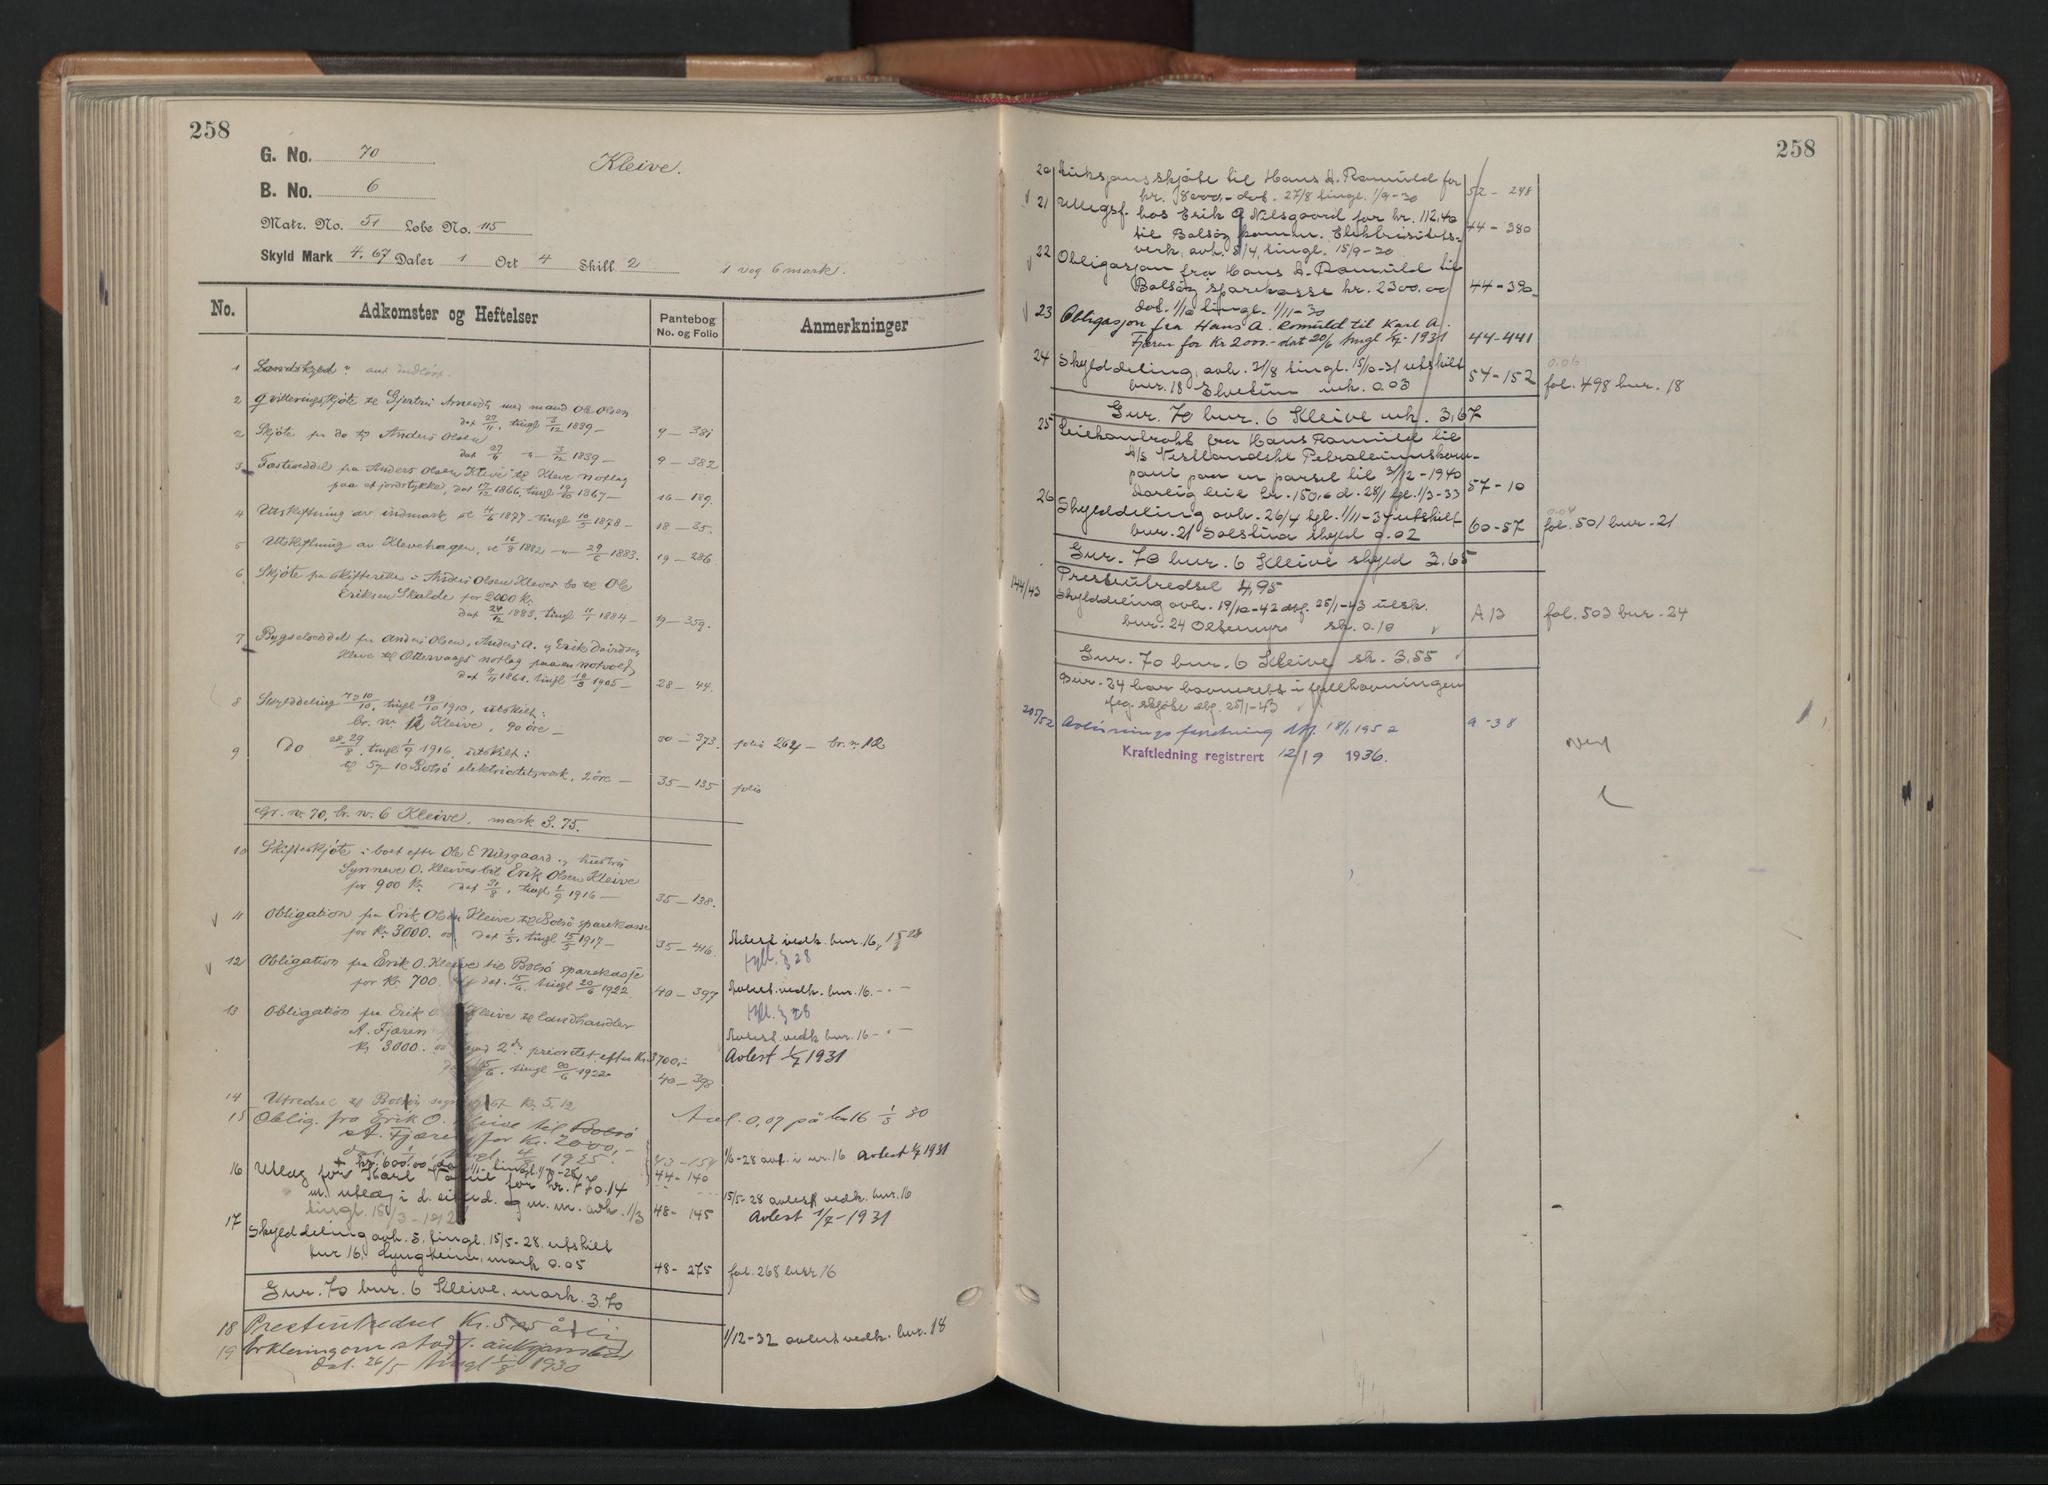 258
G. No. 70
Kleive.
B. No. 6
Matr. No. 51 Løbe No. 115
Skyld Mark 4,67 Daler 1 Ort 4 Skill. 2 1 vog 6 mark.
No. Adkomster og Heftelser Pantebog No. og Folio Anmerkninger
1 Landskyld
2 Qvitteringskjøte til Gjertru Arnesdt. med mand Ole Olsen
dat 27/11, tingl 3/12 1839 — 9 — 381
2 Skjøte fra do til Anders Olsen
dat 27/11 " — 3/12 1839 — 9 — 382
3 Fasteseddel fra Anders Olsen Kleive til Kleve notlag
paa et jordstykke, dat 17/12 1866, tingl 19/10 1867 — 16 — 189.
4 Utskiftning av indmark 11/6 1877 – tingl 10/5 1878 – 18 — 35.
5 Utskiftning av Klevehagen, 16/8 1882 — 29/6 1883. 19 — 286
6 Skjøte fra skifteretten i Anders Olsen Kleves bo til Ole
Eriksen Skalde for 2000 Kr.
dat 24/12 1883, tingl 11/1 1884 — 19 — 359.
7 Bygselseddel fra Anders Olsen, Anders A. og Erik Davidsen
Kleve til Ottervaags notlag paa en notvold
dat 11/11 1861. tingl 18/3 1905 — 28 — 44.
8 Skylddeling 7/10, tingl 18/10 1910, utskilt:
br. nr 12 Kleive, 90 øre — 30 — 373. folio 264 — br. nr. 12
9 Do 28-29/8, tingl 1/9 1916, utskilt:
til 57 – 10 Bolsø elektricitetsverk, 2 øre — 35 — 135 folio
Gr. nr. 70, br. nr. 6 Kleive, mark 3.75.
10 Skifteskjøte i boet efter Ole E Nilsgaard og hustru
Synneve O. Kleive til Erik Olsen Kleive
for 900 Kr. dat 31/8, tingl 1/9 1916 — 35 — 138.
11 Obligation fra Erik Olsen Kleive til Bolsø sparekasse
for Kr. 3000. dat 1/5, tingl 15/5 1917 — 35 — 416. Avlest vedk. bnr. 16, 15/6 28
tgl. § 28
12 Obligation fra Erik O. Kleive til Bolsø sparekasse
for Kr 700. dat. 15/6, tingl 20/6 1922 40 — 397 Avlest vedk. bnr. 16. – " –
tgl. § 28
13 Obligation fra Erik O. Kleive til landhandler
A. Fjæren Avlest vedk bnr. 16 – " –
Kr 3000. med 2den prioritet efter Kr. 3700.– Avlest 1/7 1931
15/6, tingl 20/6 1922 40 — 398
14 Utredsel til Bolsø Kr. 5,12
15 Oblig. fra Erik O. Kleive til Bolsø Avl. 0,07 på bnr 16 1/5 30
A. Fjæren for Kr. 2000,–
tingl 4/8 1925. 43 – 154 1/6-28 avl. i nr. 16 Avlest 1/7 1931
+ kr. 600.00 44 – 140
16 Utlæg for Karl for kr. 770.14
m. utlæg i d. eiend. og m. m. avh. 1/3 15/5-28 avlest vedk. bnr. 16
tingl. 15/3 – 1928 48 – 145 Avlest 1/7 – 1931
17 Skylddeling avh. 5, tingl. 15/5-28. utskilt
bnr 16, Lyngheim, mark 0.05 48 – 275 fol. 268 bnr 16
Gnr. 70 bnr. 6 Kleive, mark. 3.70
18 Presteutredsel Kr. årlig 1/12-32 avlest vedk. bnr. 18
19 Erklæring om
dat. 26/5 tingl 1/8 1930
258
20 Auksjonsskjøte til Hans A. Romuld for 52 – 248
kr. 8000,– dat. 27/8 tingl. 1/9-30
21 Utlegsf. hos Erik O Nilsgaard for kr. 112.40
til Bolsøy komm. Elektrisitets- 44 – 380
verk, avh. 8/4, tingl. 15/9-30
22 Obligasjon fra Hans A. Romuld til
Bolsøy sparekasse kr. 2300.00 44 – 390
dat. 1/10 tingl. 1/11-30
23 Obligasjon fra Hans A. Romuld til Karl A.
Fjæren for Kr 2000.– dat 20/6 tingl 1/7 – 1931 44-441
24 Skylddeling, avh. 31/8 tingl. 15/10-31 utskilt 0.06
bnr. 18 mk. 0.03 54 – 152 fol. 498 bnr. 18
Gnr. 70 bnr. 6 Kleive mk. 3,67
25 Leiekontrakt fra Hans Romuld til
A/S Vestlandske Petroleumskom-
pani paa en parsel til 3/12 – 1940
aarlig leie kr. 150,00 d. 28/1 tgl. 1/3-33 57 – 10
26 Skylddeling avh. 26/4 tgl. 1/11-34 utskilt 0.04
bnr. 21 Solstua skyld 0.02 60 – 57 fol. 501 bnr. 21
Gnr. 70 bnr. 6 Kleive skyld 3,65
Presteutredsel 4,95
144/43 Skylddeling avh. 19/10-42 dbf. 25/1-43 utsk.
bnr. 24 Oltemyr sk. 0.10 A 13 fol. 503 bnr. 24
Gnr. 70 bnr. 6 Kleive sk. 3,55
Bnr. 24 har havnerett i fellhavningen
jfg. skjøte dbf. 25/1-43
205/52 Avløsningsforretning dbf. 18/1 1952 a – 38
Kraftledning registrert 12/9 1936.